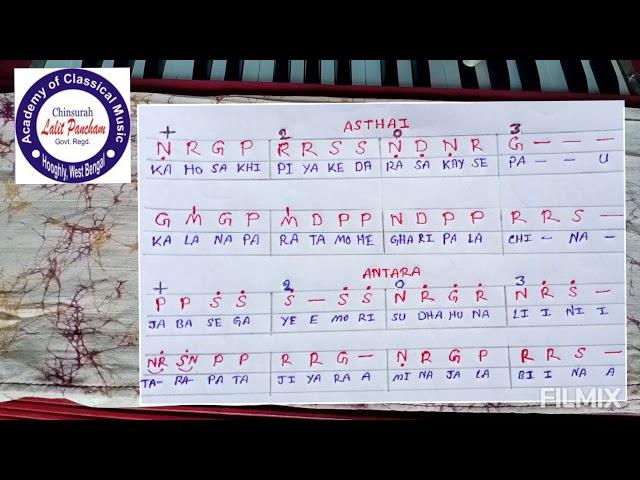 Academy of Classical Music
Chinsurah
Lalit Pancham
Govt. Regd.
Hooghly, West Bengal
ASTHAI
+ 2 0 3
Ṇ R G P R R S S Ṇ Ḍ Ṇ R G — — —
KA HO SA KHI PI YA KE DA RA SA KAY SE PA - - U
G M̍ G P M̍ D P P N D P P R R S —
KA LA NA PA RA TA MO HE GHA RI PA LA CHI - NA -
ANTARA
+ 2 0 3
P P Ṡ Ṡ Ṡ — Ṡ Ṡ N Ṙ Ġ Ṙ N Ṙ Ṡ —
JA BA SE GA YE E MO RI SU DHA HU NA LI I NI I
NṘ ṠN P P R R G — Ṇ R G P R R S —
TA- RA- PA TA JI YA RA A MI NA JA LA BI I NA A
FILMIX